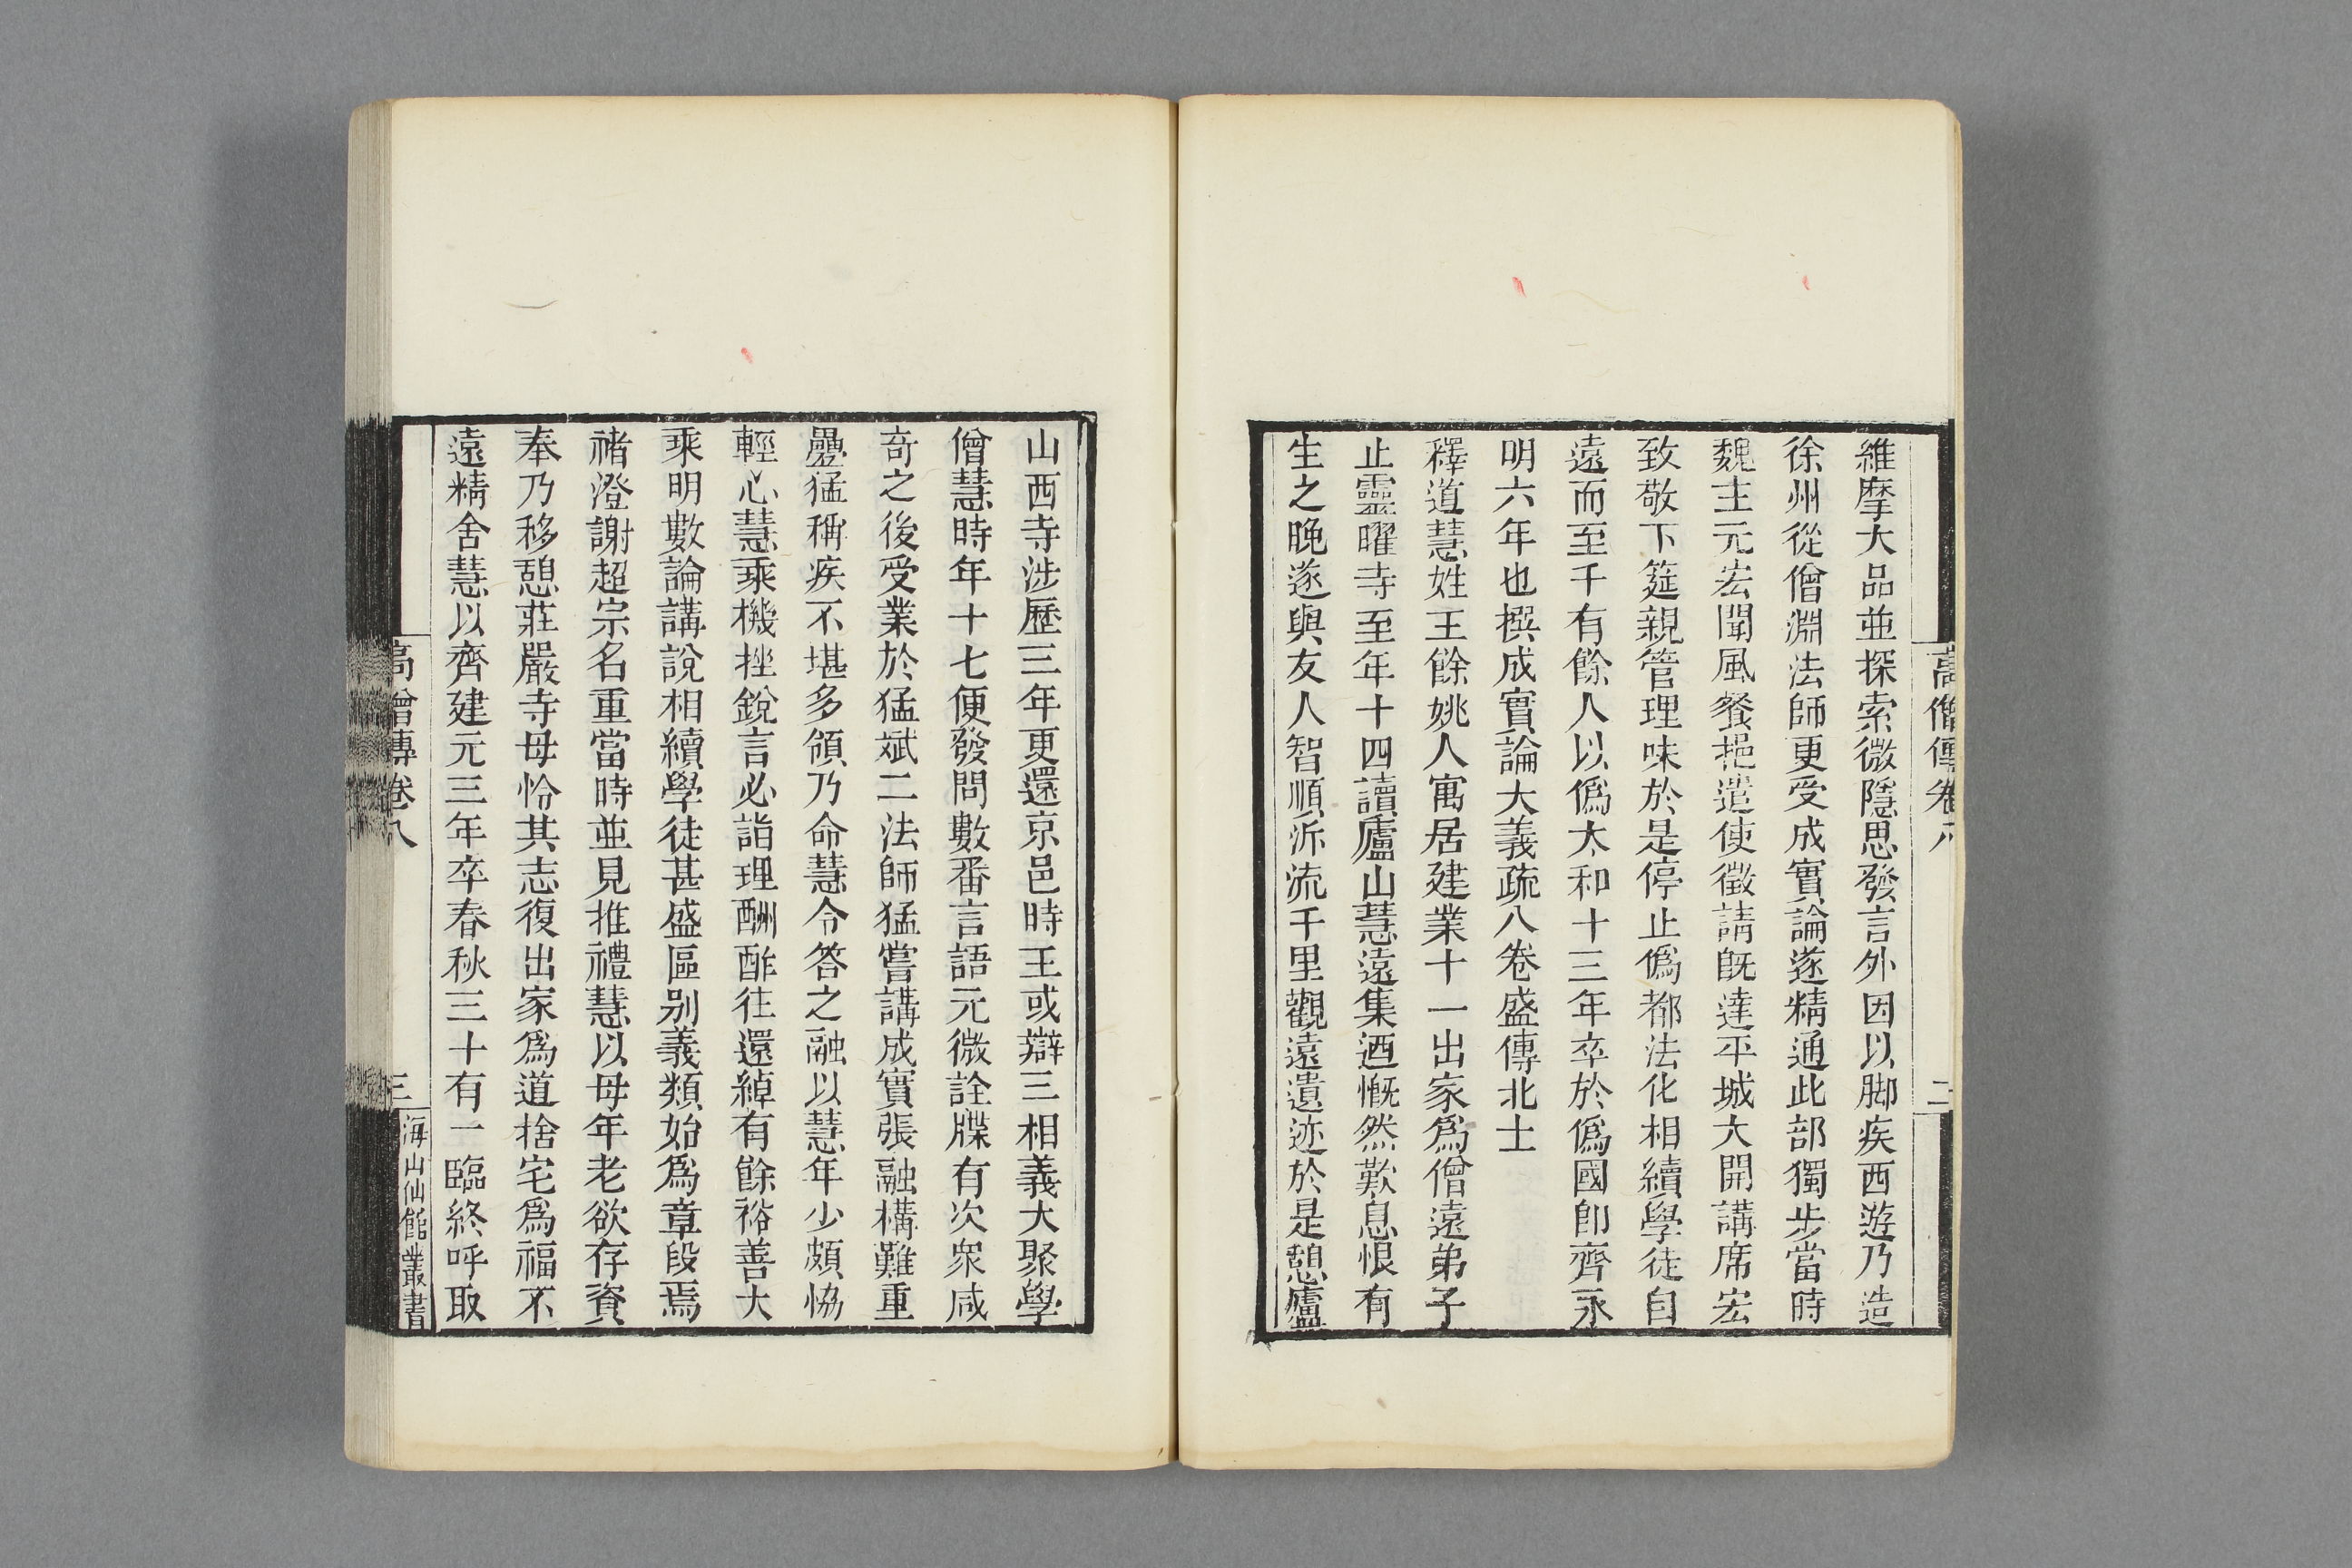 高僧傳卷八
二
維摩大品並探索微隱思發言外因以脚疾西遊乃造
徐州從僧淵法師更受成實論遂精通此部獨步當時
魏主元宏聞風餐挹遣使徵請旣達平城大開講席宏
致敬下筵親管理味於是停止僞都法化相續學徒自
遠而至千有餘人以僞太和十三年卒於僞國卽齊永
明六年也撰成實論大義疏八卷盛傳北士
釋道慧姓王餘姚人寓居建業十一出家爲僧遠弟子
止靈曜寺至年十四讀廬山慧遠集迺慨然歎息恨有
生之晚遂與友人智順泝流千里觀遠遺迹於是憩廬
山西寺涉歷三年更還京邑時王或辯三相義大聚學
僧慧時年十七便發問數番言語元微詮牒有次衆咸
奇之後受業於猛斌二法師猛嘗講成實張融構難重
疊猛稱疾不堪多領乃命慧令答之融以慧年少頗恊
輕心慧乘機挫銳言必詣理酬酢往還綽有餘裕善大
乘明數論講說相續學徒甚盛區别義類始爲章段焉
褚澄謝超宗名重當時並見推禮慧以母年老欲存資
奉乃移憩莊嚴寺母怜其志復出家爲道捨宅爲福不
遠精舍慧以齊建元三年卒春秋三十有一臨終呼取
高僧傳卷八
三
海山仙館叢書